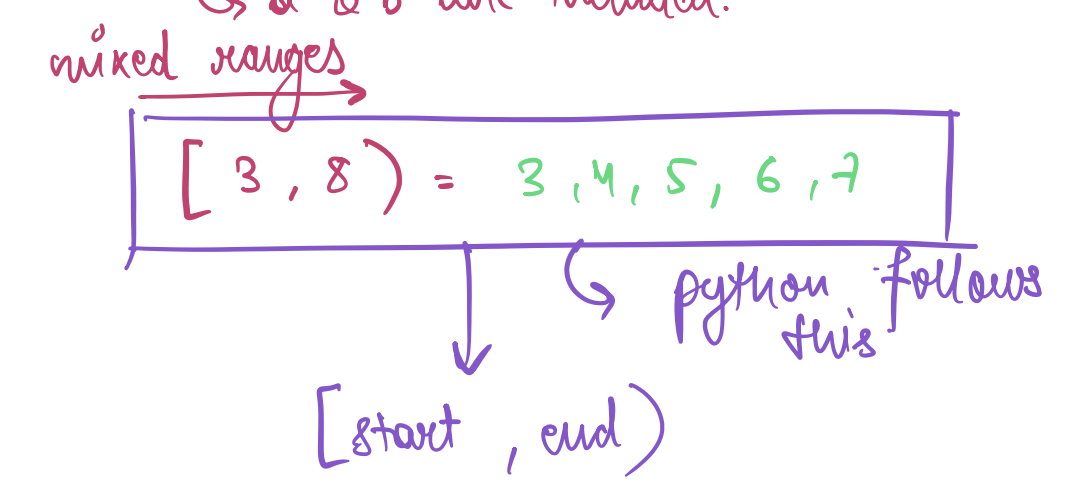 & 8 are included.
mixed ranges
[ 3 , 8 ) = 3 , 4 , 5 , 6 , 7
python follows
this
[start , end)